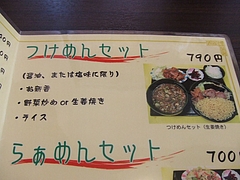 つけめんセット 790円
(醤油、または塩味に限り)
・お新香
・野菜炒め or 生姜焼き
・ライス
つけめんセット(生姜焼き)
らぁめんセット 700